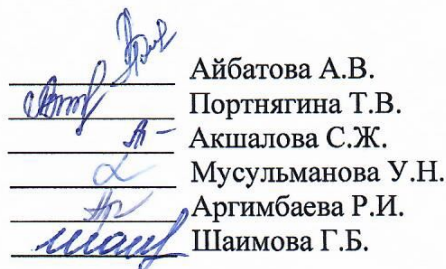 Айбатова А.В.
Портнягина Т.В.
Акшалова С.Ж.
Мусульманова У.Н.
Аргимбаева Р.И.
Шаимова Г.Б.